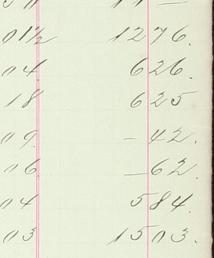 01½ 1276.
04 626.
18 625
09. - 42.
06 - 62.
04 584.
03 1503.